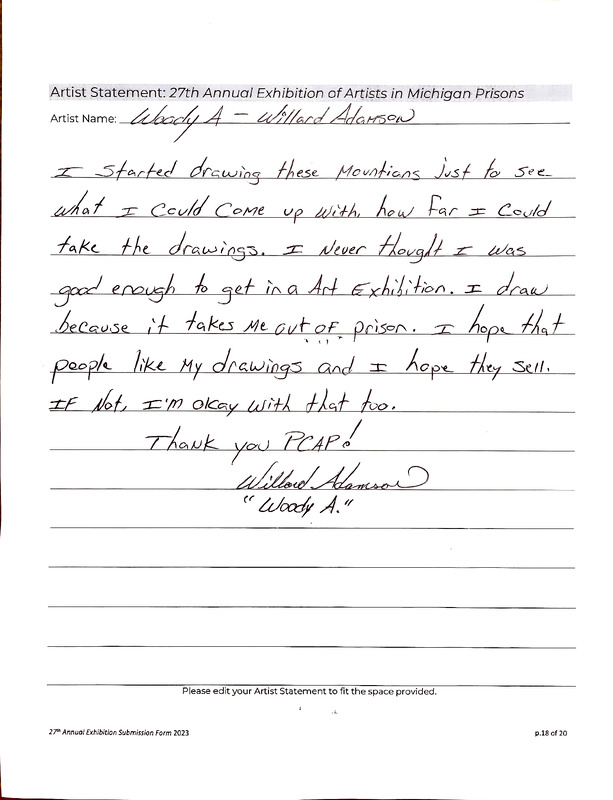 Artist Statement: 27th Annual Exhibition of Artists in Michigan Prisons
Artist Name: Woody A - Willard Adamson
I Started drawing these Mountians just to see
what I Could Come up with, how far I Could
take the drawings. I Never thought I was
good enough to get in a Art Exhibition. I draw
because it takes Me out of prison. I hope that
people like My drawings and I hope they sell.
IF Not, I'm okay with that too.
Thank you PCAP!
Willard Adamson
"Woody A."
Please edit your Artist Statement to fit the space provided.
27th Annual Exhibition Submission Form 2023 p.18 of 20